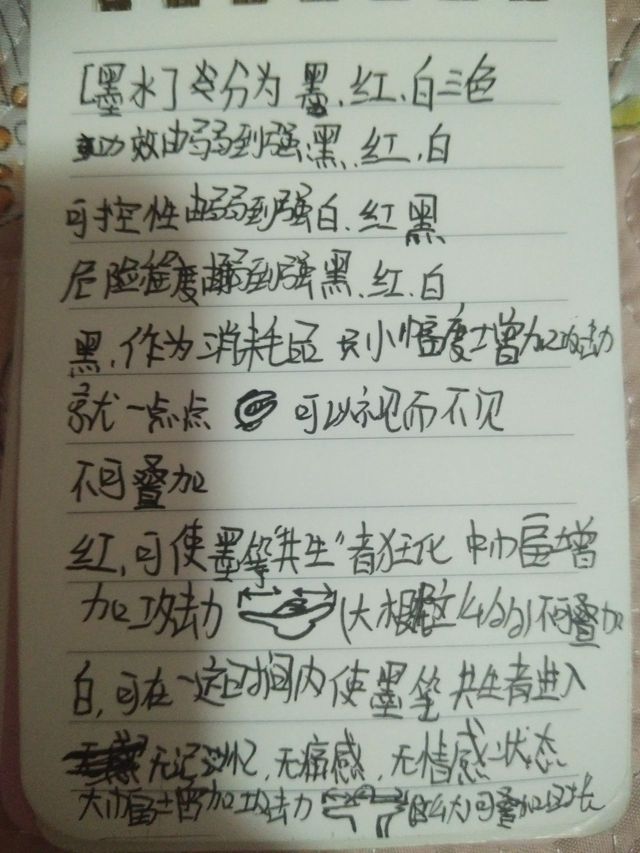 [墨水]分为墨、红、白三色
功效由弱到强黑、红、白
可控性由弱到强白、红黑
危险程度由弱到强黑、红、白
黑，作为消耗品 只小幅度增加攻击力
就一点点 可以视而不见
不可叠加
红，可使墨笔"共生"者狂化 中幅增
加攻击力 (大概 不可叠加
白，可在一定时间内使墨笔共生者进入
无记忆，无痛感，无情感状态
大幅增加攻击力 么大)可叠加